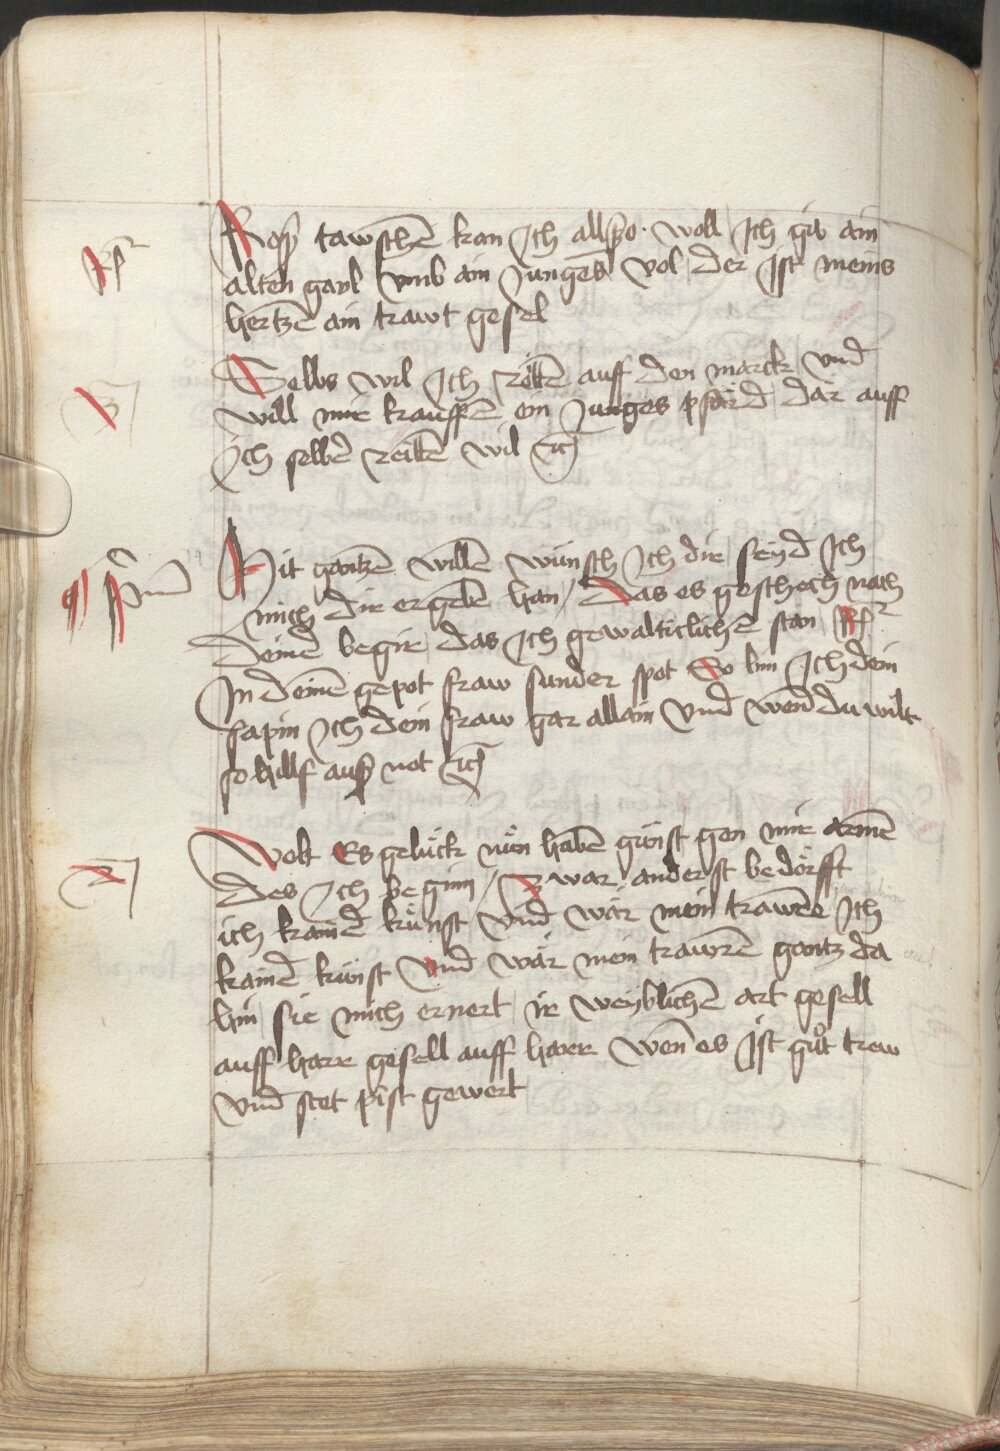 Rosß tawschñ kan Ich allßo. woll Ich gib ain
Rf
alten gaul vmb ain Junges vol der Ist meins
hertzñ ain trawt gesel
Selbs wil Ich reittñ auff den marck vnd
3
will mir kauffñ ein Junges pfärd dar auff
Ich selber reittñ wil etc
Mit gantzñ willñ wünsch Ich dir seyd Ich
mich dir ergebñ han / Das es geschech nach
deinē begir das Ich gewalticlichñ stan Rf
In deinē gepot fraw sunder spot So bin Ich dein
sa pin Ich dein fraw gar allain vnd wen̄ du wilt
so hilff auß not etc
Wolt Es gelück nün habñ günst gen mir armē
2
des Ich beginn / Zwar anderst bedörfft
ich kainē künst vnd wär mein trawrē Ich
kainē künst vnd wär mein trawrē gantz da
hin sie mich ernert ir weyblichñ art gesell
auff harr gesell auff harr wen̄ es Ist gůt trew
vnd stet pist gewert